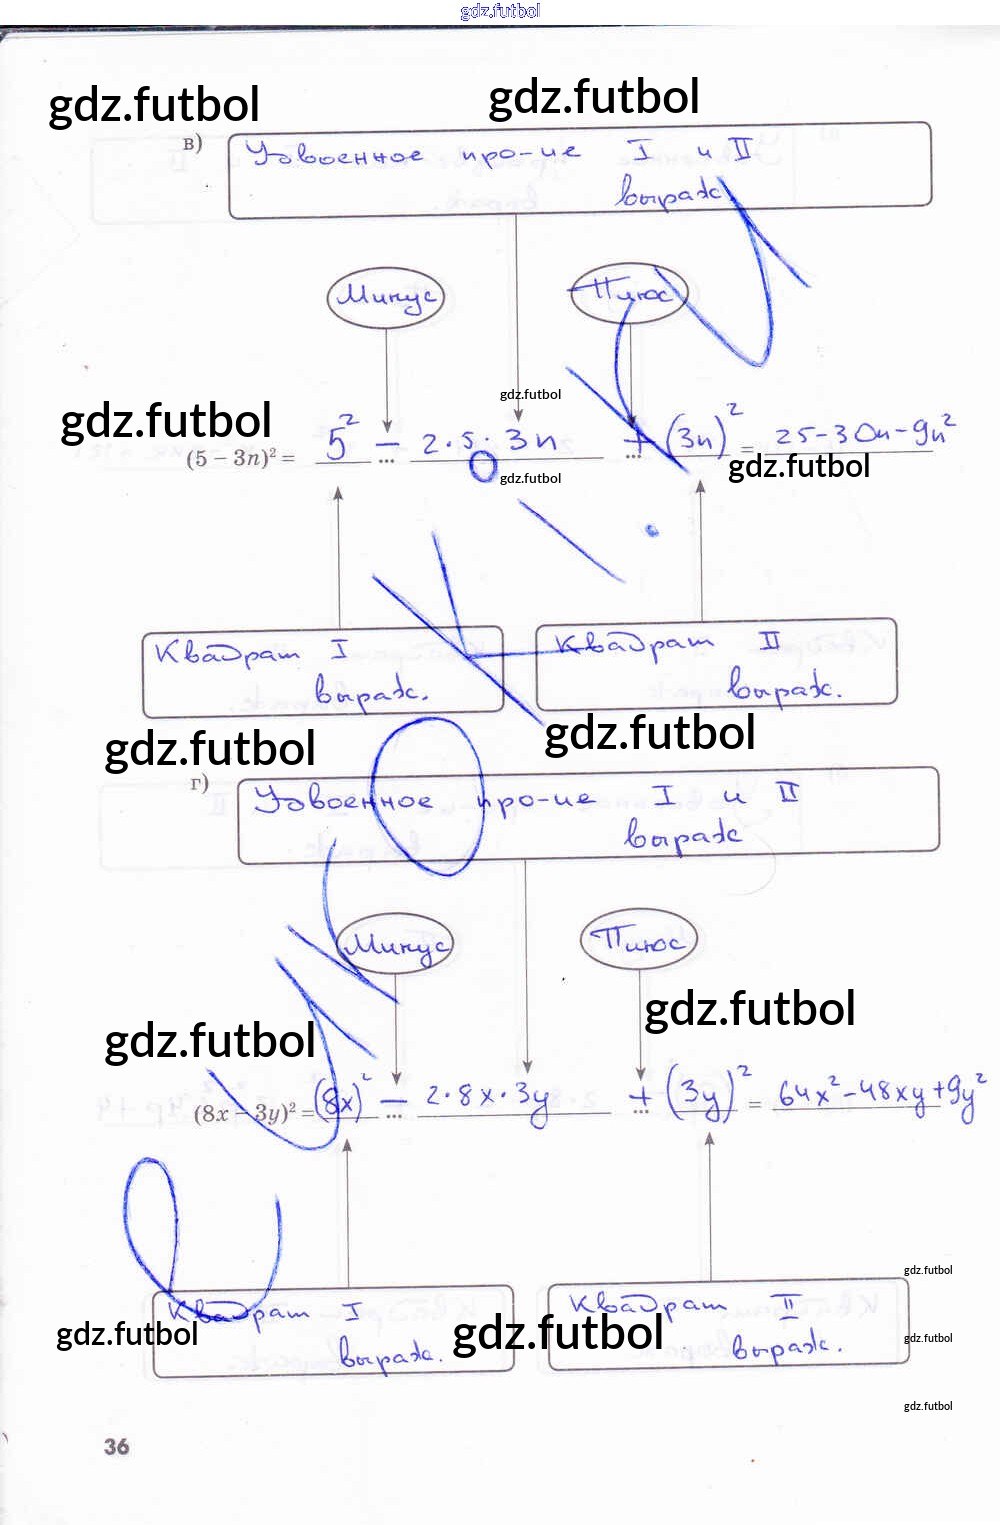 gdz.futbol
gdz.futbol gdz.futbol
в) Удвоенное про-ие I и II
выраж.
Минус Плюс
gdz.futbol
gdz.futbol
(5 − 3n)² = 5² − 2·5·3n + (3n)² = 25-30n-9n²
... ...
gdz.futbol gdz.futbol
Квадрат I Квадрат II
выраж. выраж.
gdz.futbol gdz.futbol
г) Удвоенное про-ие I и II
выраж
Минус Плюс
gdz.futbol
gdz.futbol
(8x − 3y)² = (8x)² − 2·8x·3y + (3y)² = 64x²-48xy+9y²
... ...
gdz.futbol
Квадрат I Квадрат II
gdz.futbol gdz.futbol gdz.futbol
выраж. выраж.
gdz.futbol
36